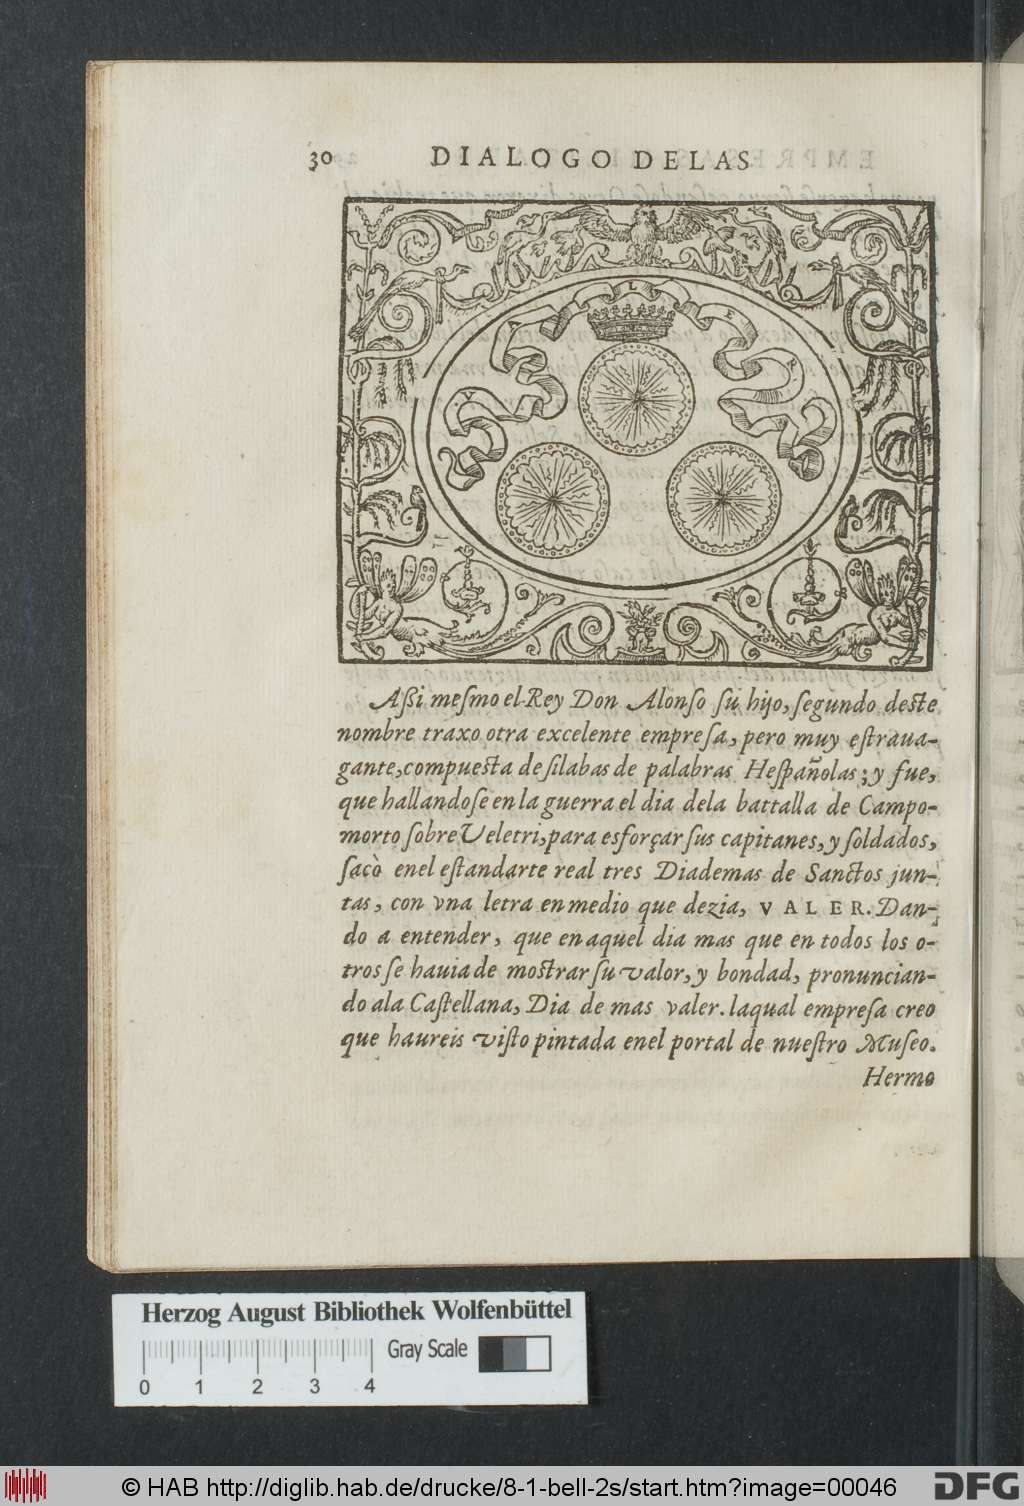 30 DIALOGO DE LAS
V A L E R
Aßi mesmo el Rey Don Alonſo ſu hijo, ſegundo deſte
nombre traxo otra excelente empreſa, pero muy eſtraua-
gante, compueſta de ſilabas de palabras Heſpañolas; y fue,
que hallandoſe en la guerra el dia dela battalla de Campo-
morto ſobre Veletri, para esforçar ſus capitanes, y ſoldados,
ſacò enel eſtandarte real tres Diademas de Sanctos jun-
tas, con vna letra en medio que dezia, VALER. Dan-
do a entender, que en aquel dia mas que en todos los o-
tros ſe hauia de moſtrar ſu valor, y bondad, pronuncian-
do ala Caſtellana, Dia de mas valer. laqual empreſa creo
que haureis viſto pintada enel portal de nueſtro Muſeo.
Hermo
Herzog August Bibliothek Wolfenbüttel
Gray Scale
0 1 2 3 4
© HAB http://diglib.hab.de/drucke/8-1-bell-2s/start.htm?image=00046
DFG